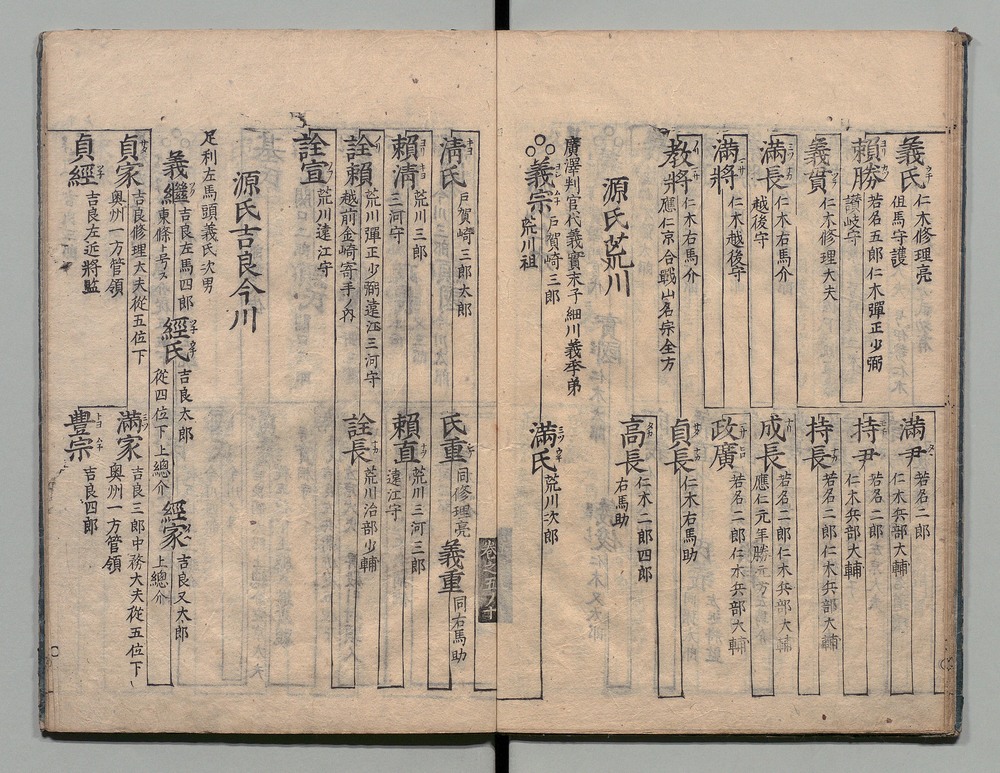 義氏 仁木修理亮
但馬守護
頼勝 若名五郎仁木彈正少弼
讃岐守
義貫 仁木修理大夫
滿長 仁木右馬介
越後守
滿將 仁木越後守
教將 仁木右馬介
應仁京合戰山名宗全方
滿尹 若名二郎
仁木兵部大輔
持尹 若名二郎
仁木兵部大輔
持長 若名二郎仁木兵部大輔
成長 若名二郎仁木兵部大輔
應仁元年勝元方
政廣 若名二郎仁木兵部大輔
貞長 仁木右馬助
高長 仁木二郎四郎
右馬助
源氏荒川
廣澤判官代義實末子細川義季弟
義宗 戸賀崎三郎
荒川祖
滿氏 荒川次郎
清氏 戸賀崎三郎太郎
頼清 荒川三郎
三河守
詮頼 荒川彈正少弼遠江三河守
越前金崎寄手ノ内
詮宣 荒川遠江守
氏重 同修理亮
義重 同右馬助
頼直 荒川三河三郎
遠江守
詮長 荒川治部少輔
卷之五ノ子
源氏吉良今川
足利左馬頭義氏次男
義繼 吉良左馬四郎
東條ト号ス
經氏 吉良太郎
從四位下上總介
經家 吉良又太郎
上總介
貞家 吉良修理大夫從五位下
奥州一方管領
滿家 吉良三郎中務大夫從五位下
奥州一方管領
貞經 吉良左近將監
豊宗 吉良四郎